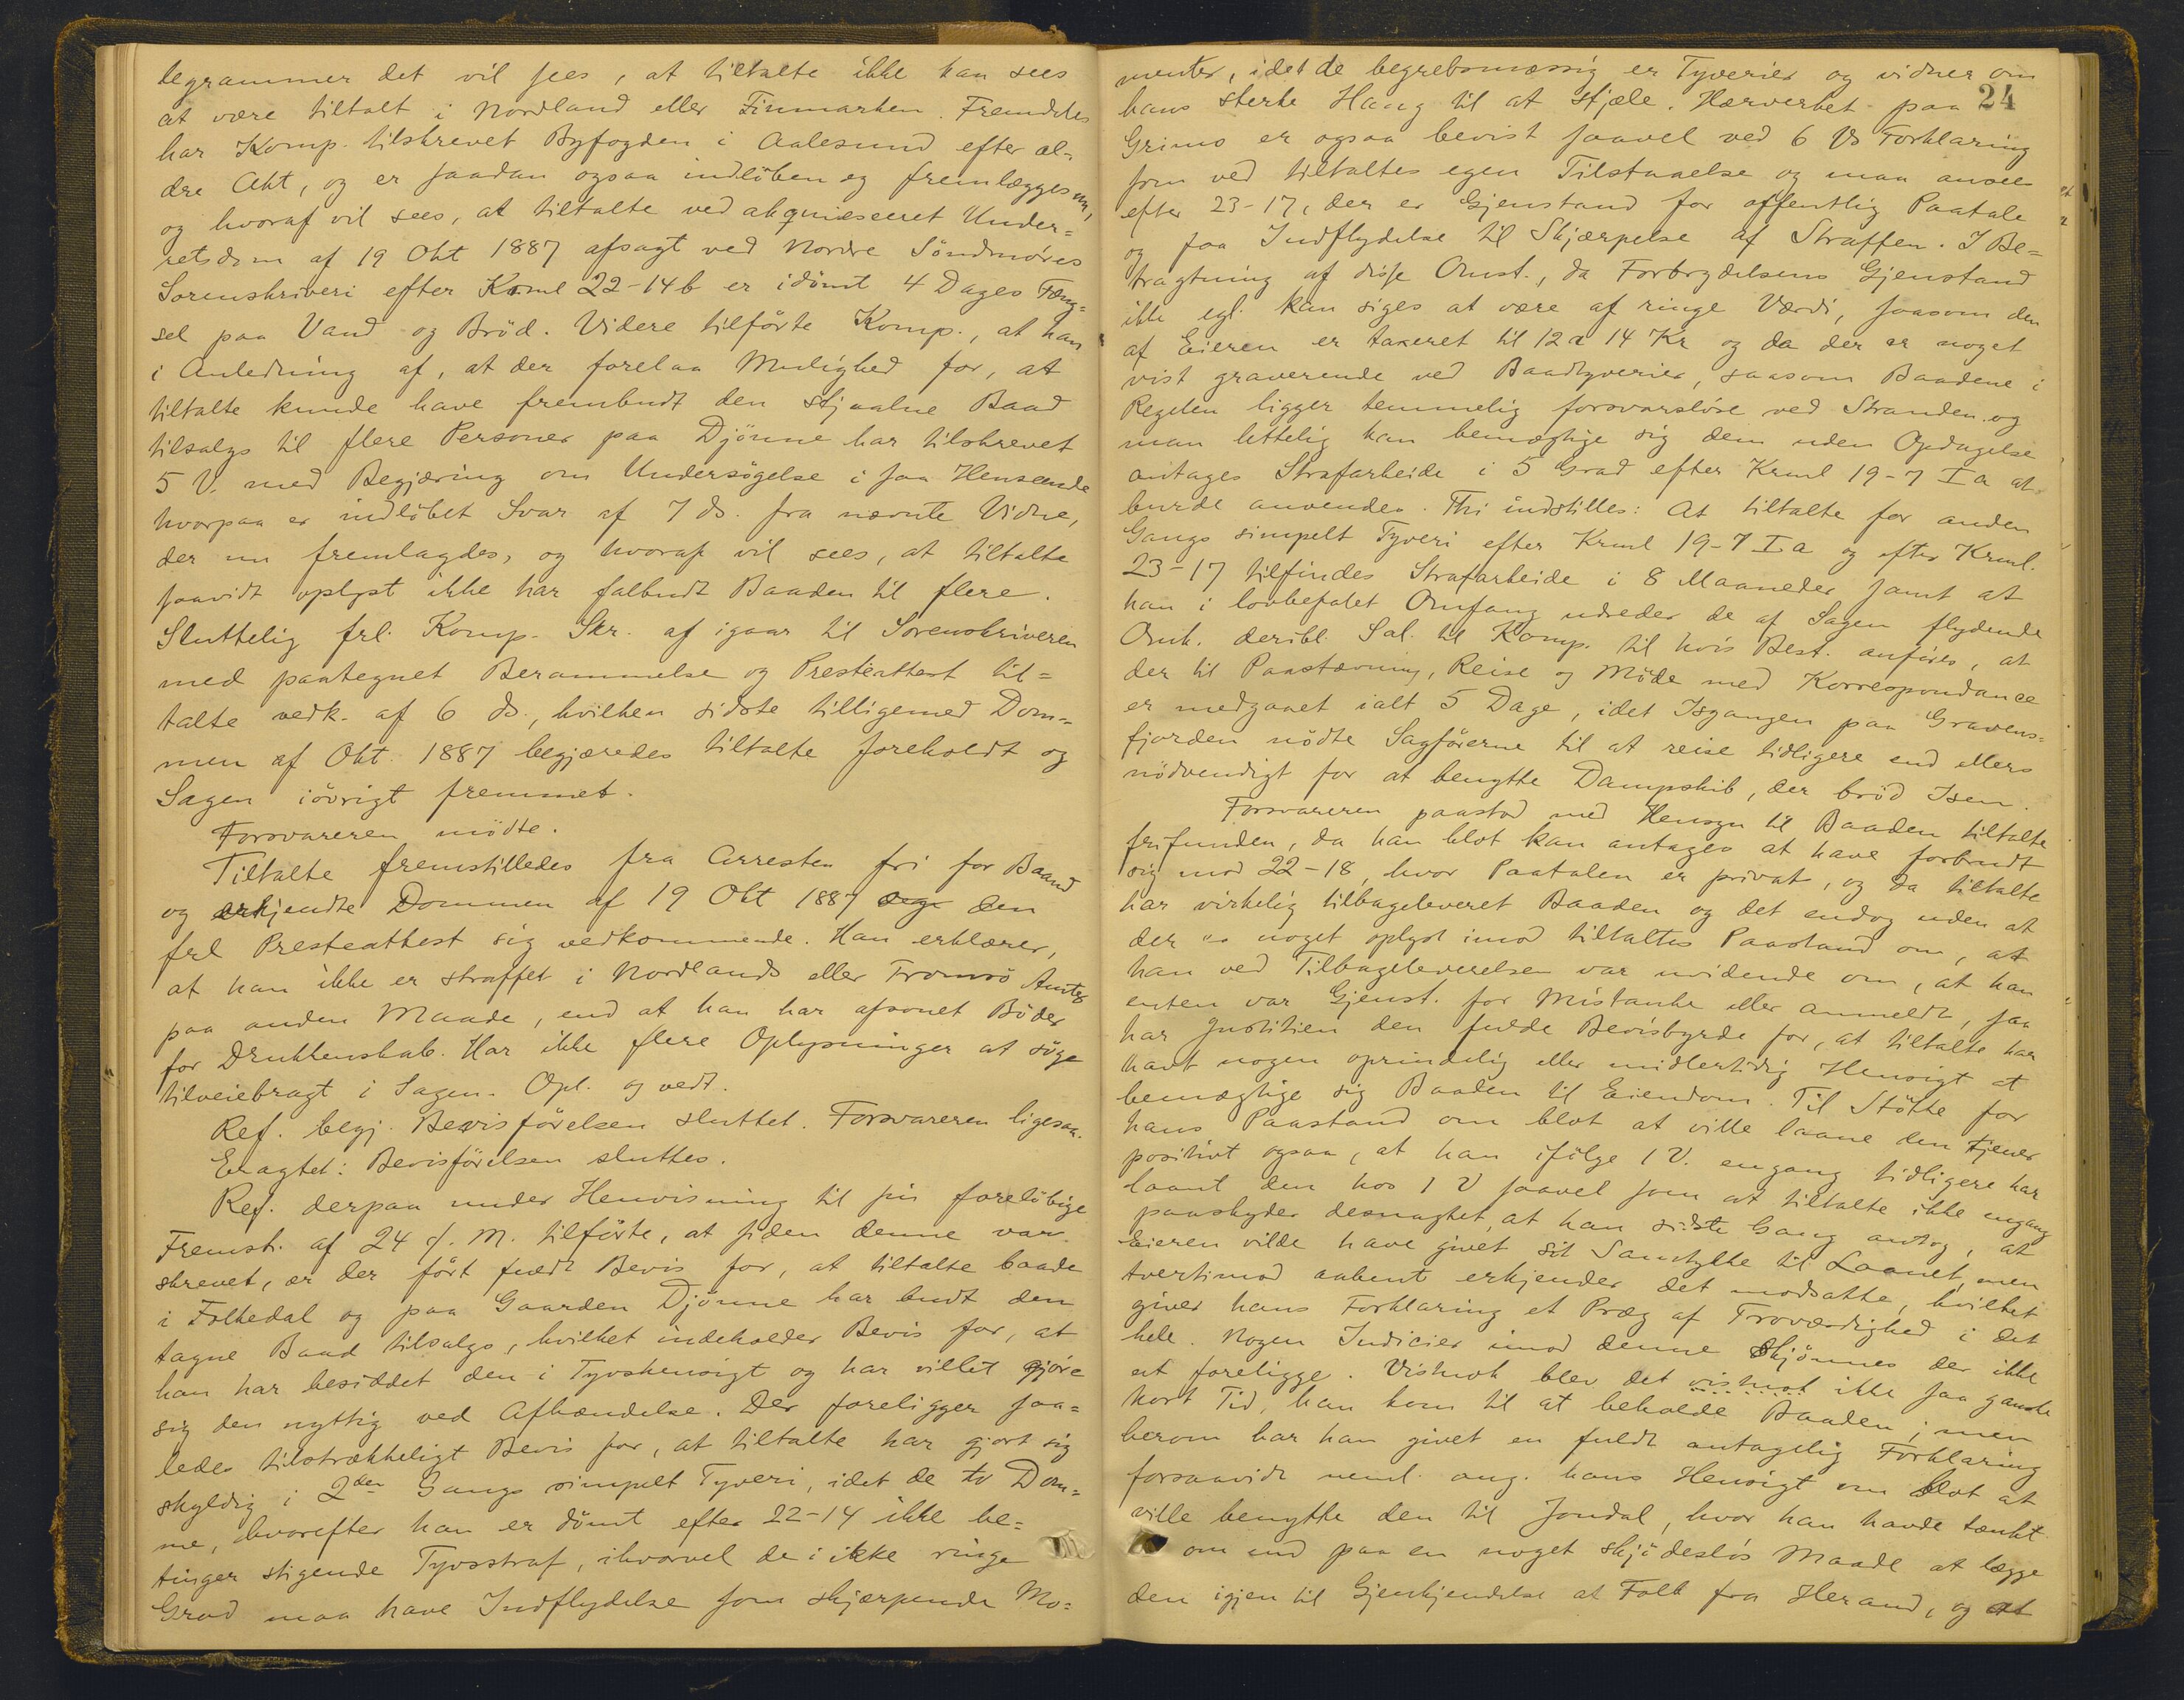 legrammer det vil sees, at tiltalte ikke kan sees
at være tiltalt i Nordland eller Finmarken. Fremdeles
har Komp. tilskrevet Byfogden i Aalesund efter æl-
dre Akt, og er saadan ogsaa indløben og fremlægges nu,
og hvoraf vil sees, at tiltalte ved akquiesceret Under-
retsdom af 19 Okt 1887 afsagt ved Nordre Söndmöres
Sorenskriveri efter Kriml 22-14b er idömt 4 Dages Fæng-
sel paa Vand og Bröd. Videre tilförte Komp., at han
i Anledning af, at der forelaa Mulighed for, at
tiltalte kunde have frembudt den stjaalne Baad
tilsalgs til flere Personer paa Djönne har tilskrevet
5 V. med Begjæring om Undersögelse i saa Henseende
hvorpaa er indlöbet Svar af 7 ds. fra nævnte Vidne,
der nu fremlagdes, og hvoraf vil sees, at tiltalte
saavidt oplyst ikke har falbudt Baaden til flere.
Sluttelig frl. Komp. Skr. af igaar til Sorenskriveren
med paategnet Berammelse og Presteattest til-
talte vedk. af 6 ds., hvilken sidste tilligemed Dom-
men af Okt. 1887 begjæredes tiltalte foreholdt og
Sagen iövrigt fremmet.
Forsvareren mödte.
Tiltalte fremstilledes fra Arresten fri for Baand
og erkjendte Dommen af 19 Okt 1887 og den
frl Presteattest sig vedkommende. Han erklærer,
at han ikke er straffet i Nordlands eller Tromsö Amter
paa anden Maade, end at han har afsonet Böder
for Drukkenskab. Har ikke flere Oplysninger at söge
tilveiebragt i Sagen. Opl. og vedt.
Ref. begj. Bevisförelsen sluttet. Forsvareren ligesaa.
Eragtet: Bevisförelsen sluttes.
Ref. derpaa under Henvisning til sin forelöbige
Fremst. af 24 f. M. tilförte, at siden denne var
skrevet, er der fört fuldt Bevis for, at tiltalte baade
i Folkedal og paa Gaarden Djönne har budt den
tagne Baad tilsalgs, hvilket indeholder Bevis for, at
han har besiddet den i Tyvshensigt og har villet gjöre
sig den nyttig ved Afhændelse. Der foreligger saa-
ledes tilstrækkeligt Bevis for, at tiltalte har gjort sig
skyldig i 2den Gangs simpelt Tyveri, idet de to Dom-
me, hvorefter han er dömt efter 22-14 ikke be-
tinger stigende Tyvsstraf, ihvorvel de i ikke ringe
Grad maa have Indflydelse som skjærpende Mo-
24
menter, idet de begrebsmæssig er Tyverier og vidner om
hans sterke Hang til at stjæle. Hærverket paa
Grimo er ogsaa bevist saavel ved 6 Vs Forklaring
som ved tiltaltes egen Tilstaaelse og maa ansees
efter 23-17, der er Gjenstand for offentlig Paatale
og faa Indflydelse til Skjærpelse af Straffen. I Be-
tragtning af disse Omst., da Forbrydelsens Gjenstand
ikke egl. kan siges at være af ringe Værdi, saasom den
af Eieren er taxeret til 12 a 14 Kr og da der er noget
vist graverende ved Baadtyverier, saasom Baadene i
Regelen ligger temmelig forsvarslöse ved Stranden og
man lettelig kan bemægtige sig dem uden Opdagelse
antages Strafarbeide i 5 Grad efter Kriml 19-7 I a at
burde anvendes. Thi indstilles: At tiltalte for anden
Gangs simpelt Tyveri efter Kriml 19-7 I a og efter Kriml.
23-17 tilfindes Strafarbeide i 8 Maaneder samt at
han i lovbefalet Omfang udreder de af Sagen flydende
Omk. deribl. Sal. til Komp. til hvis Best. anföres, at
der til Paastævning, Reise og Möde med Korrespondance
er medgaaet ialt 5 Dage, idet Isgangen paa Gravens-
fjorden nödte Sagförerne til at reise tidligere end ellers
nödvendigt for at benytte Dampskib, der bröd Isen.
Forsvareren paastod med Hensyn til Baaden tiltalte
frifunden, da han blot kan antages at have forbrudt
sig mod 22-18, hvor Paatalen er privat, og da tiltalte
har virkelig tilbageleveret Baaden og det endog uden at
der er noget oplyst imod tiltaltes Paastand om, at
han ved Tilbageleverelsen var uvidende om, at han
enten var Gjenst. for Mistanke eller anmeldt, saa
har Justitien den fulde Bevisbyrde for, at tiltalte har
havt nogen oprindelig eller midlertidig Hensigt at
bemægtige sig Baaden til Eiendom. Til Stötte for
hans Paastand om blot at ville laane den tjener
positivt ogsaa, at han ifölge 1 V. engang tidligere har
laant den hos 1 V saavel som at tiltalte ikke engang
paaskyder desuagtet, at han sidste Gang antog, at
Eieren vilde have givet sit Samtykke til Laanet, men
tvertimod aabent erkjender det modsatte, hvilket
giver hans Forklaring et Præg af Troværdighed i det
hele. Nogen Indicier imod denne skjönnes der ikke
at foreligge. Vistnok blev det vistnok ikke saa ganske
kort Tid, han kom til at beholde Baaden; men
herom har han givet en fuldt antagelig Forklaring
forsaavidt neml. ang. hans Hensigt om blot at
ville benytte den til Jondal, hvor han havde tænkt
om end paa en noget skjödeslös Maade at lægge
den igjen til Gjenkjendelse at Folk fra Herand, og at